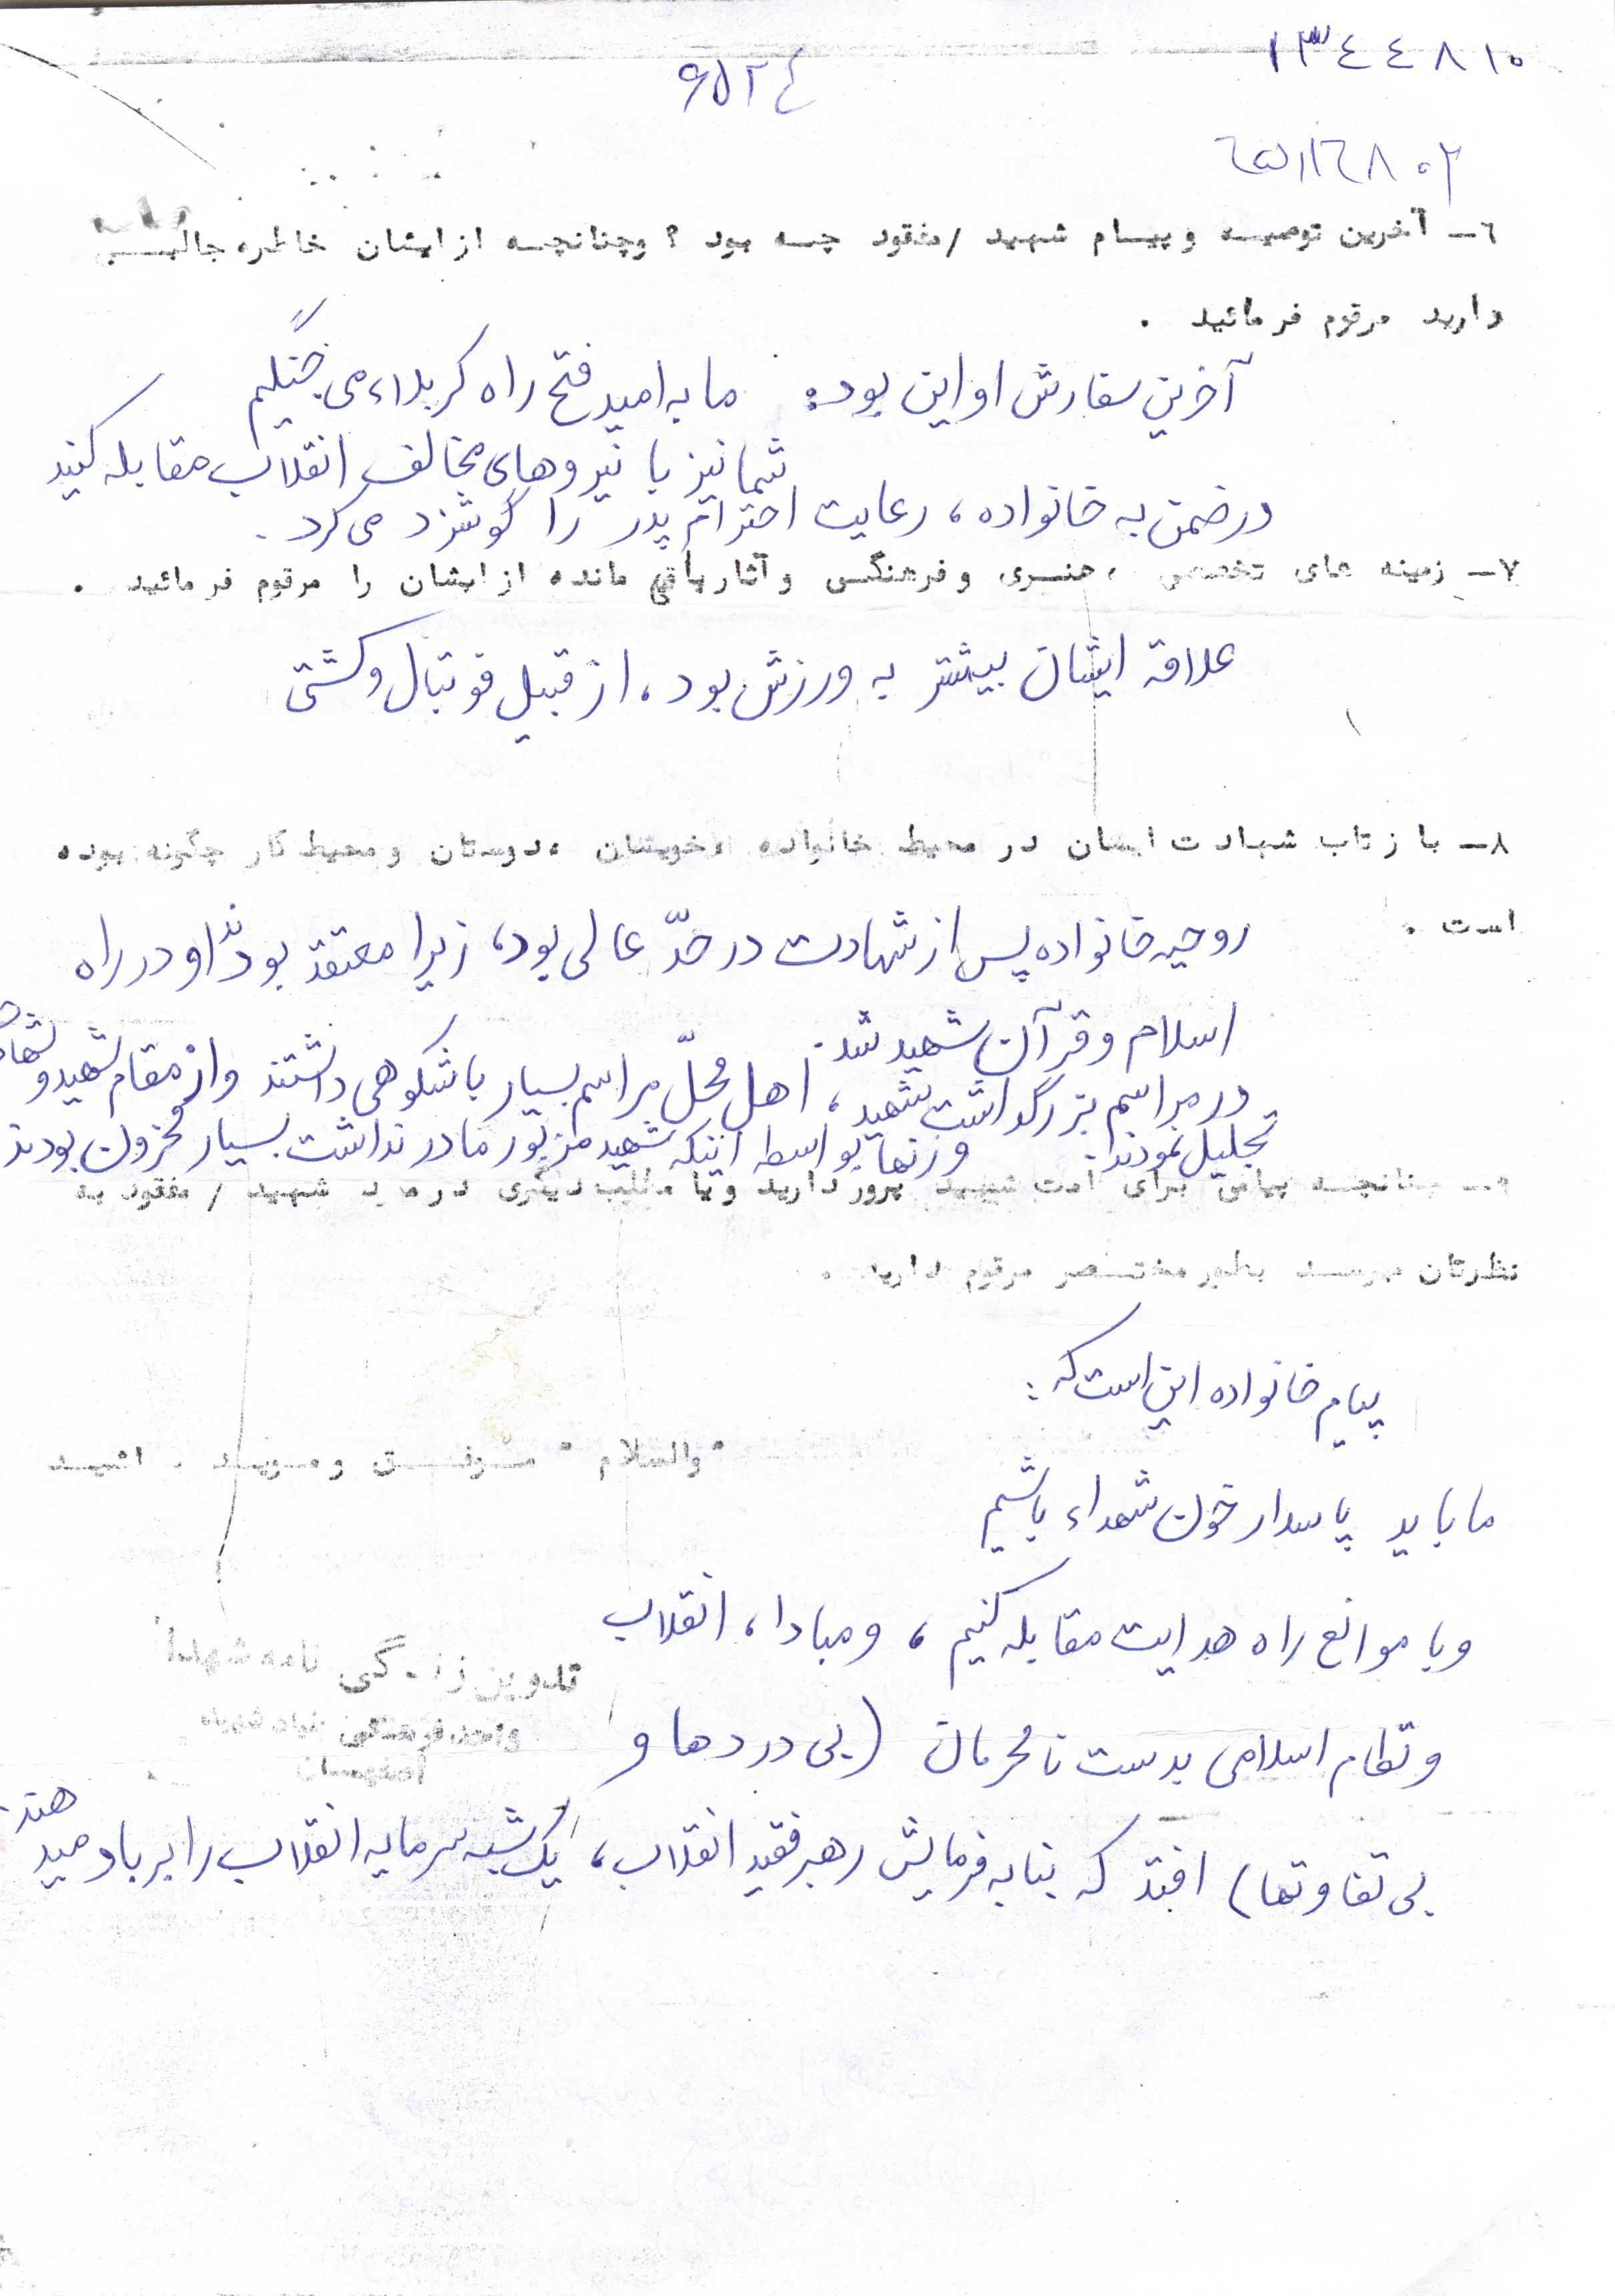 ۱۳۴۴۸۱۰
۶۵۲۴
۶۵۱۱۶۸۰۲
۶ــ آخرین توصیــه و پیــام شهید /مفقود چــه بود ؟ وچنانچــه از ایشان خاطره جالبــی
دارید مرقوم فرمائید .
آخرین سفارش او این بود: ما به امید فتح راه کربلاء می جنگیم
شما نیز با نیروهای مخالف انقلاب مقابله کنید
در ضمن به خانواده، رعایت احترام پدر را گوشزد می کرد .
۷ــ زمینه های تخصصی ،هنــری و فرهنگــی و آثارباقی مانده از ایشان را مرقوم فرمائید .
علاقه ایشان بیشتر به ورزش بود، از قبیل فوتبال و کشتی
۸ــ بازتاب شهادت ایشان در محیط خانواده ،خویشان ،دوستان و محیط کار چگونه بوده
است .
روحیه خانواده پس از شهادت در حدّ عالی بود، زیرا معتقد بودند او در راه
اسلام و قرآن شهید شد.
در مراسم بزرگداشت شهید، اهل محلّ مراسم بسیار باشکوهی داشتند و از مقام شهید و
تجلیل نمودند. و زنها بواسطه اینکه شهید مزبور مادر نداشت بسیار محزون بودند
۹ــ چنانچــه پیامی برای امت شهید پرور دارید و یا مطلب دیگری در مورد شهید / مفقود به
نظرتان میرســد بطور مختــصر مرقوم دارید .
پیام خانواده این است که :
"والسلام" مــوفــق و مویــد باشیــد
ما باید پاسدار خون شهداء باشیم
و با موانع راه هدایت مقابله کنیم، و مبادا، انقلاب
تدوین زندگی نامه شهدا
و نظام اسلامی بدست نامحرمان (بی دردها و
واحد فرهنگی بنیاد شهید
اصفهان
بی تفاوتها) افتد که بنا به فرمایش رهبر فقید انقلاب، یک شبه سرمایه انقلاب را بر باد میدهند.